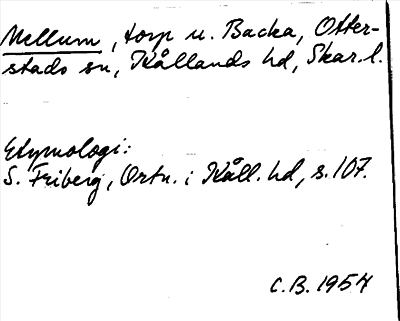 Mellum, torp u. Backa, Otter-
stads sn, Kållands hd, Skar.l.
Etymologi:
S. Friberg, Ortn. i Kåll. hd, s.107.
C.B. 1957